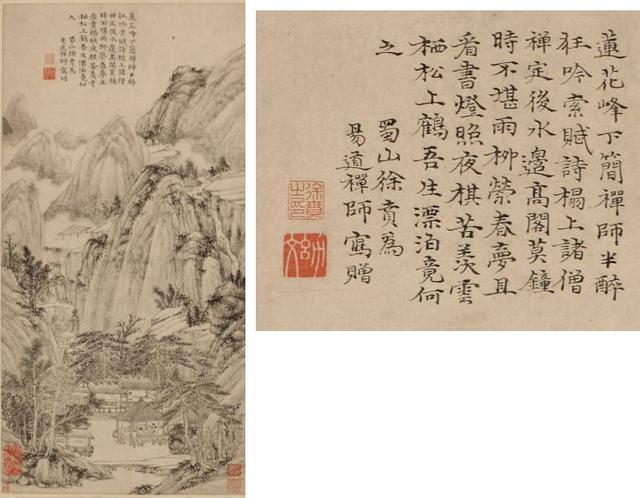 蓮花峰下簡禪師半醉
狂吟索賦詩榻上諸僧
禪定後水邊高閣莫鐘
時不堪雨柳縈春夢且
看書燈照夜棋苦羨雲
栖松上鶴吾生漂泊竟何
之
蜀山徐賁為
易道禪師寫贈
徐賁之印
幼文